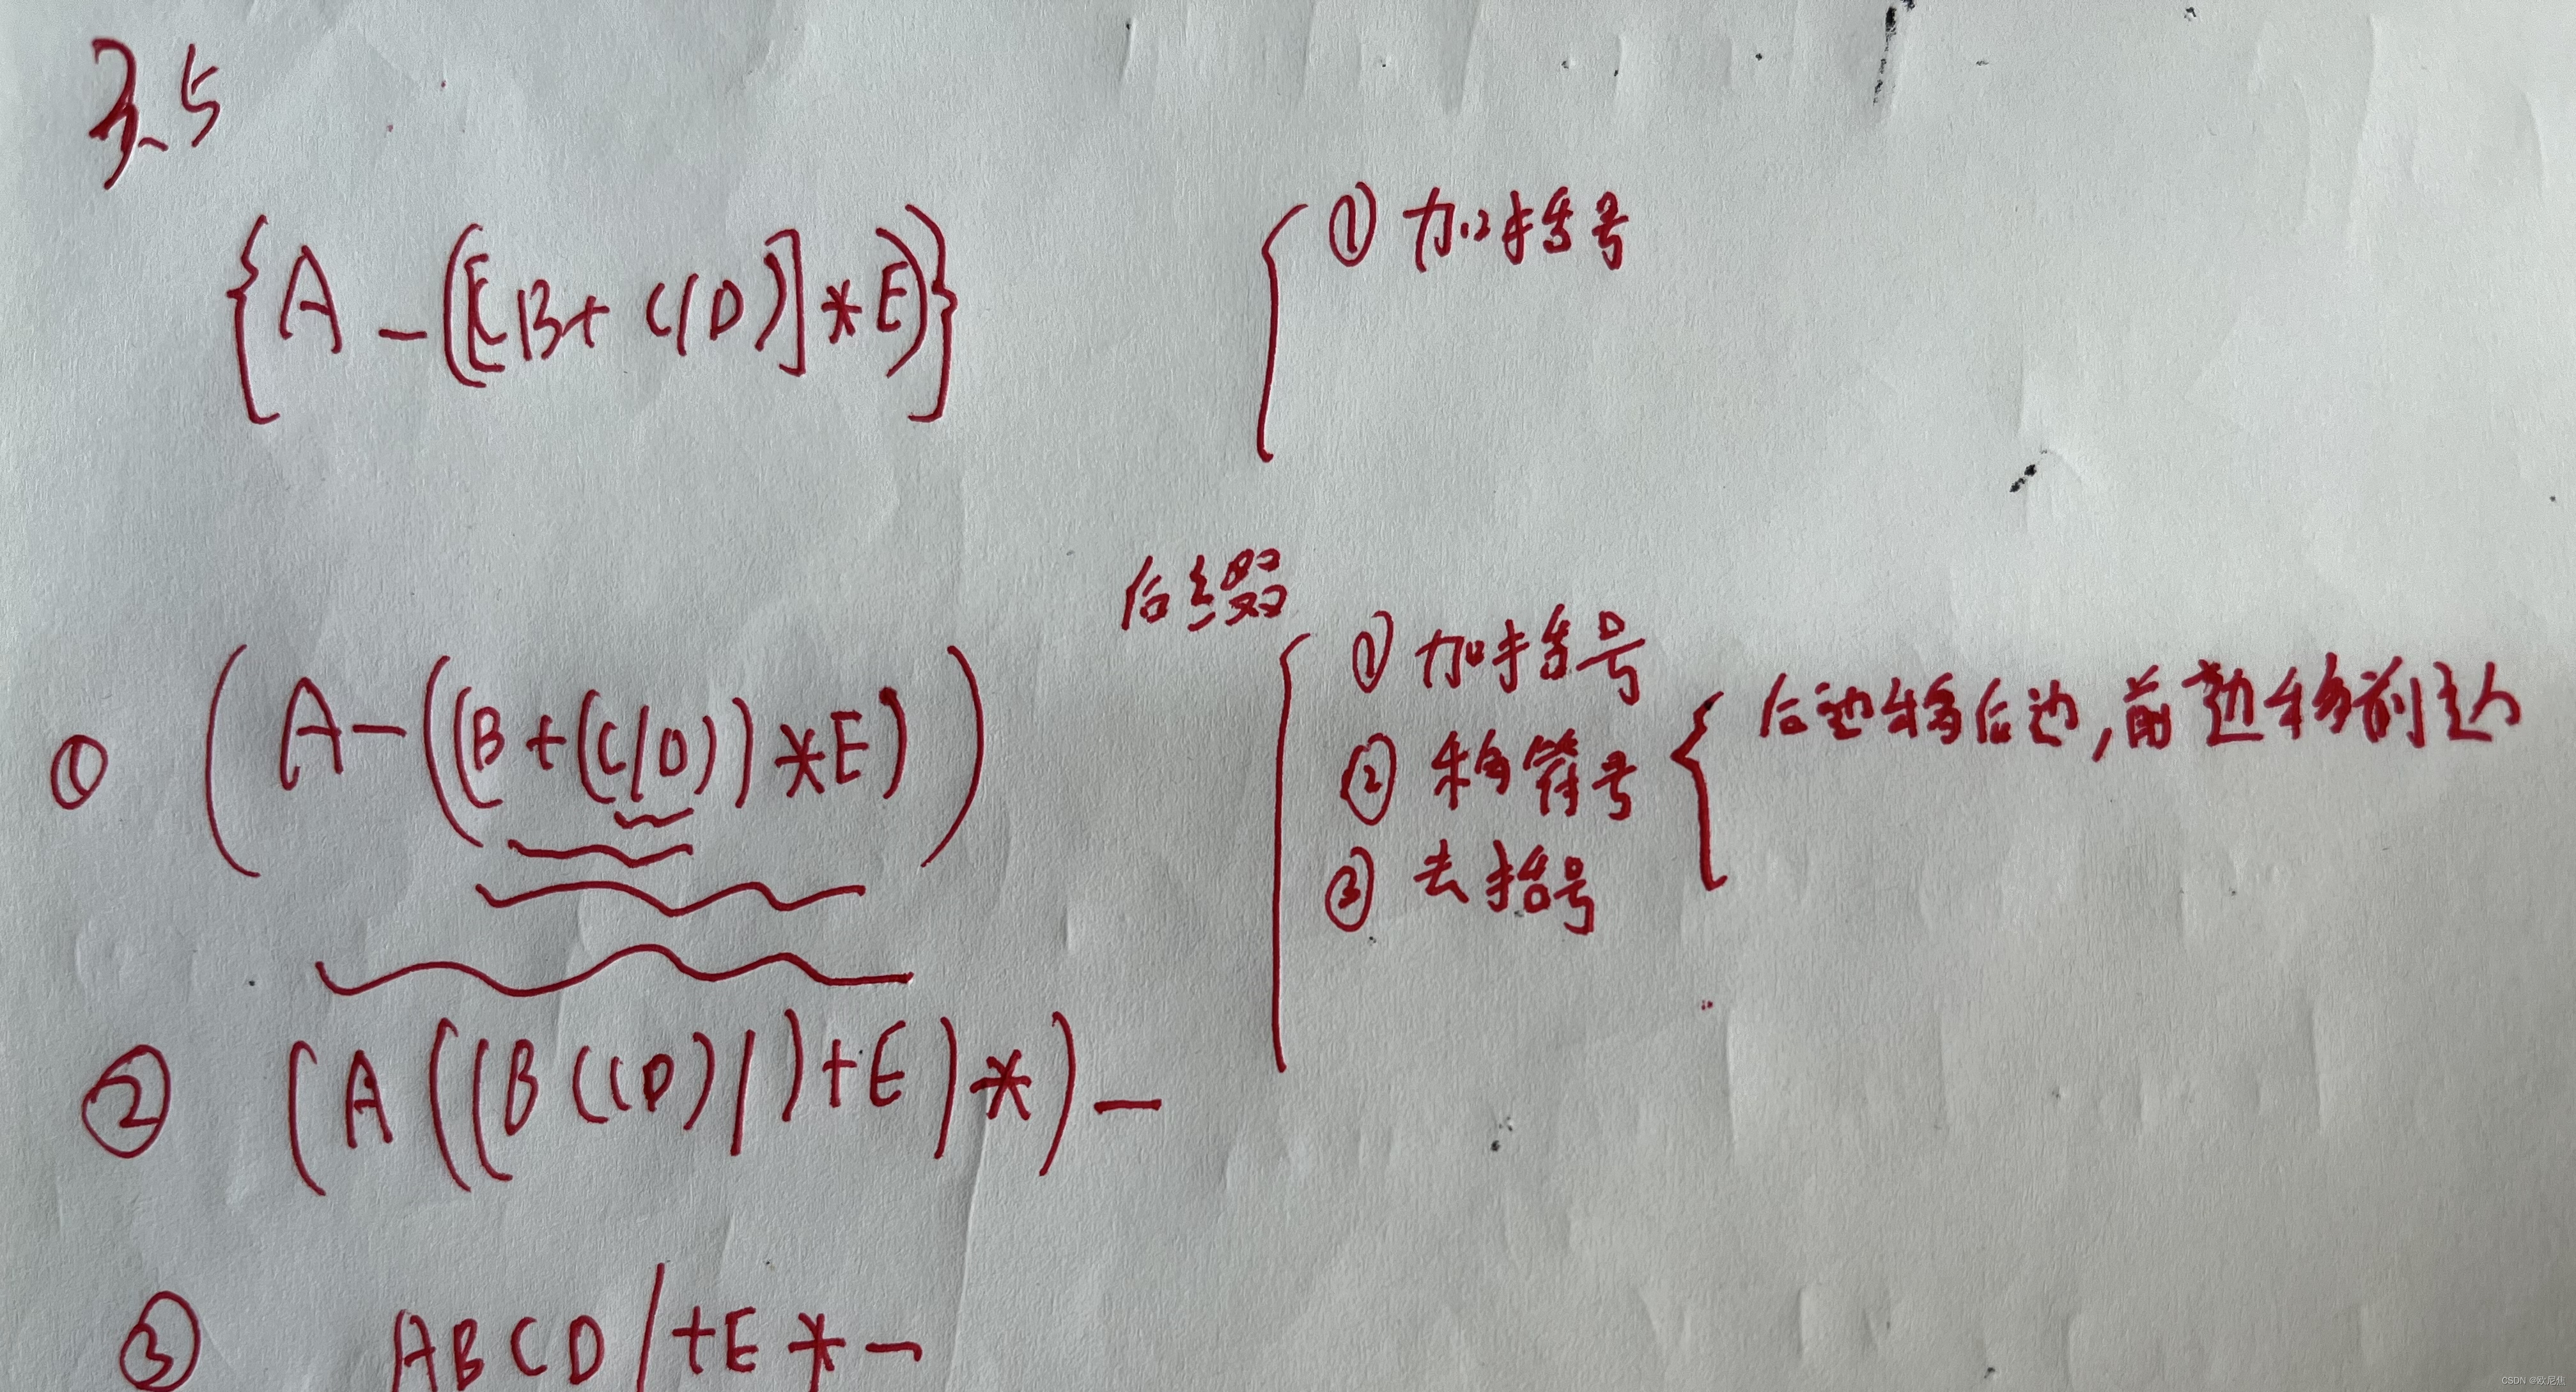 3.5
{A-([(B+C/D)]*E)}
① 加括号
后缀
① 加括号
② 移符号 { 后边移后边,前边移前边
③ 去括号
① (A-((B+(C/D))*E))
② (A((B(CD)/)+E)*)-
③ ABCD/+E*-
CSDN @欧尼焦